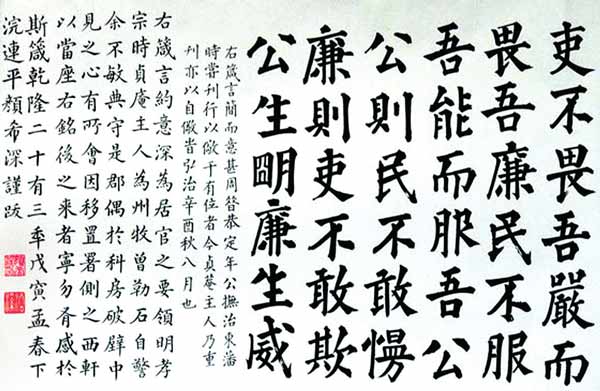 吏不畏吾嚴而
畏吾廉民不服
吾能而服吾公
公則民不敢慢
廉則吏不敢欺
公生明廉生威
右箴言簡而意甚周昝恭定年公撫治東藩
時嘗刊行以儆于有位者今貞菴主人乃重
刊亦以自儆旹弘治辛酉秋八月也
右箴言約意深為居官之要領明孝
宗時貞庵主人為州牧曾勒石自警
余不敏典守是郡偶於科房破壁中
見之心有所會因移置署側之西軒
以當座右銘後之來者寧勿胥感於
斯箴乾隆二十有三年戊寅孟春下
浣連平顏希深謹跋